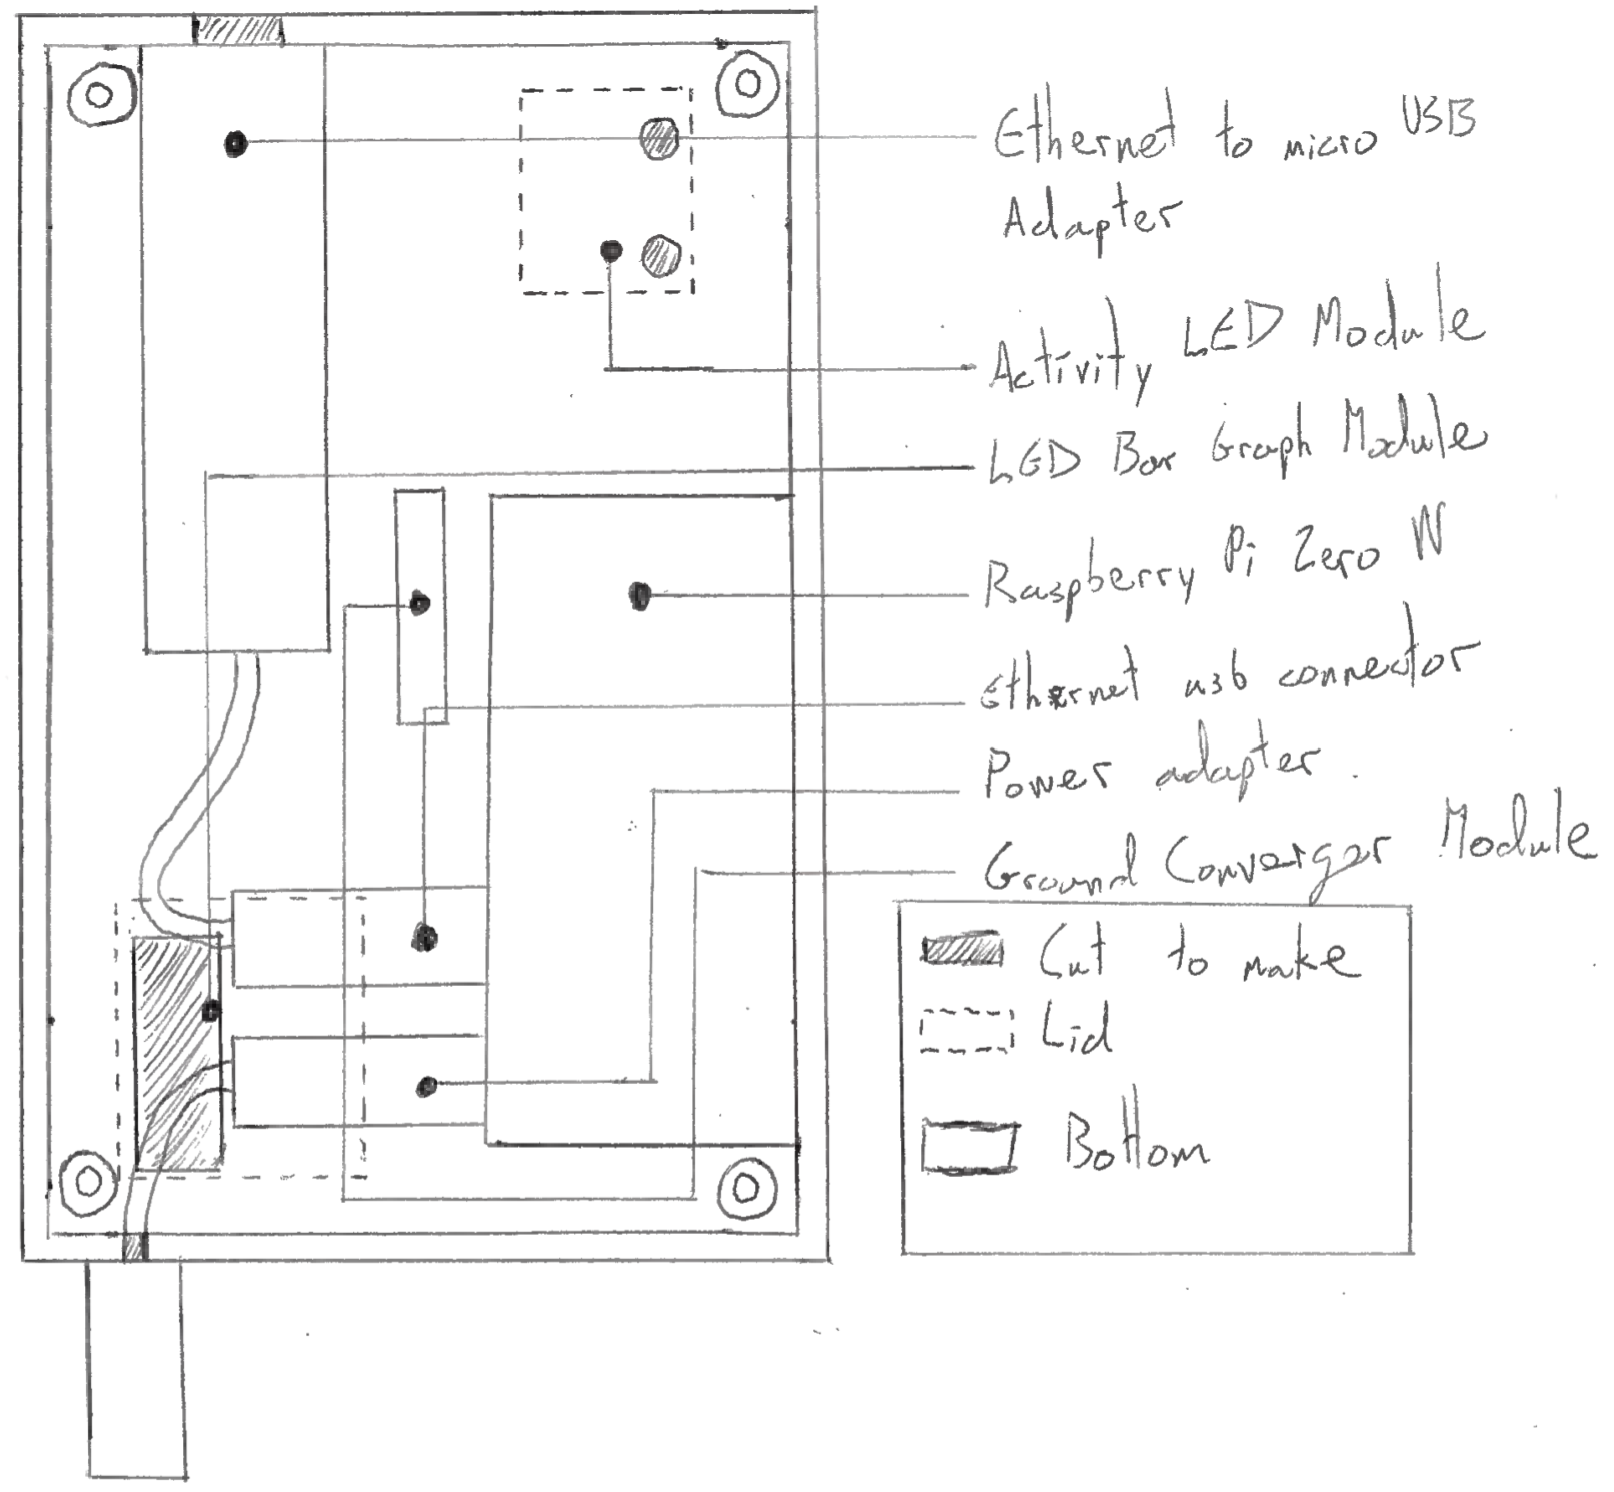 Ethernet to micro USB
Adapter
Activity LED Module
LED Bar Graph Module
Raspberry Pi Zero W
Ethernet usb connector
Power adapter
Ground Converger Module
Cut to make
Lid
Bottom